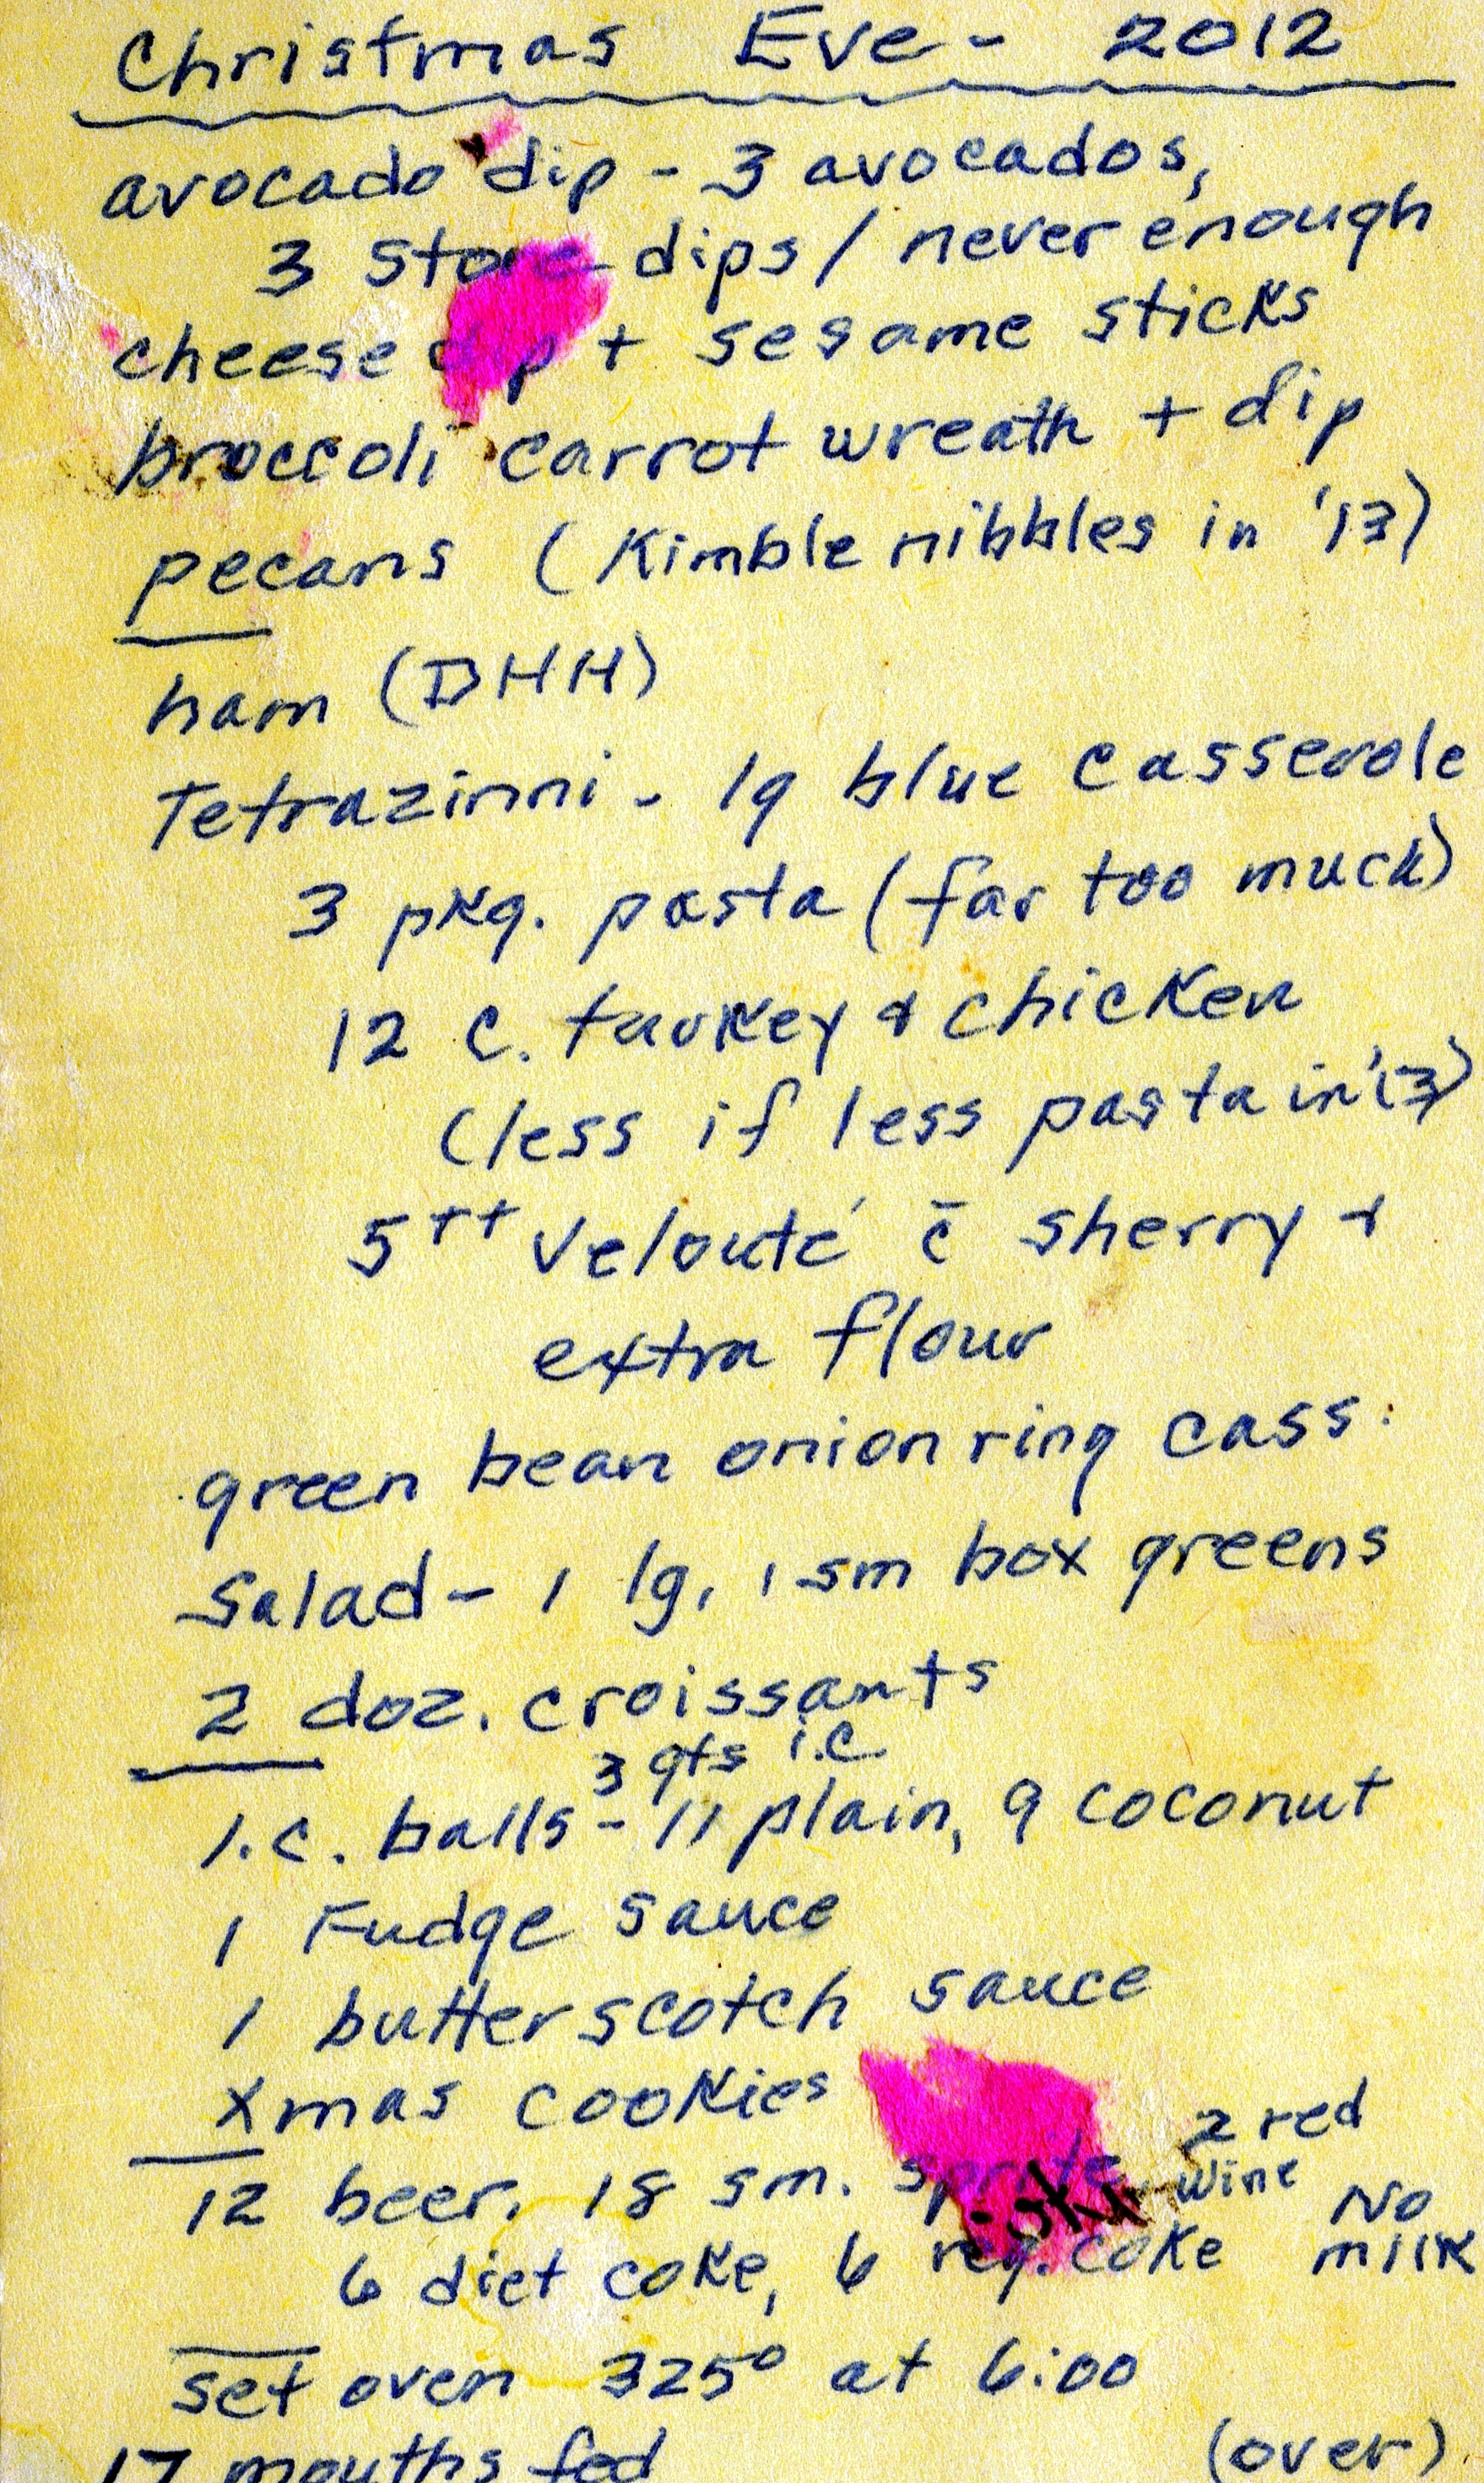 Christmas Eve - 2012
avocado dip - 3 avocados,
3 store dips / never enough
cheese dip + sesame sticks
broccoli carrot wreath + dip
pecans (Kimble nibbles in '13)
ham (DHH)
Tetrazinni - lg blue casserole
3 pkg. pasta (far too much)
12 c. turkey & chicken
(less if less pasta in '13)
5++ velouté c̄ sherry +
extra flour
green bean onion ring cass.
Salad - 1 lg, 1 sm box greens
2 doz. croissants
3 qts i.c
I.c. balls - 11 plain, 9 coconut
1 Fudge sauce
1 butterscotch sauce
Xmas cookies
2 red
wine
12 beer, 18 sm. sprite
No
milk
6 diet coke, 6 reg. coke
set oven 325° at 6:00
17 mouths fed (over)